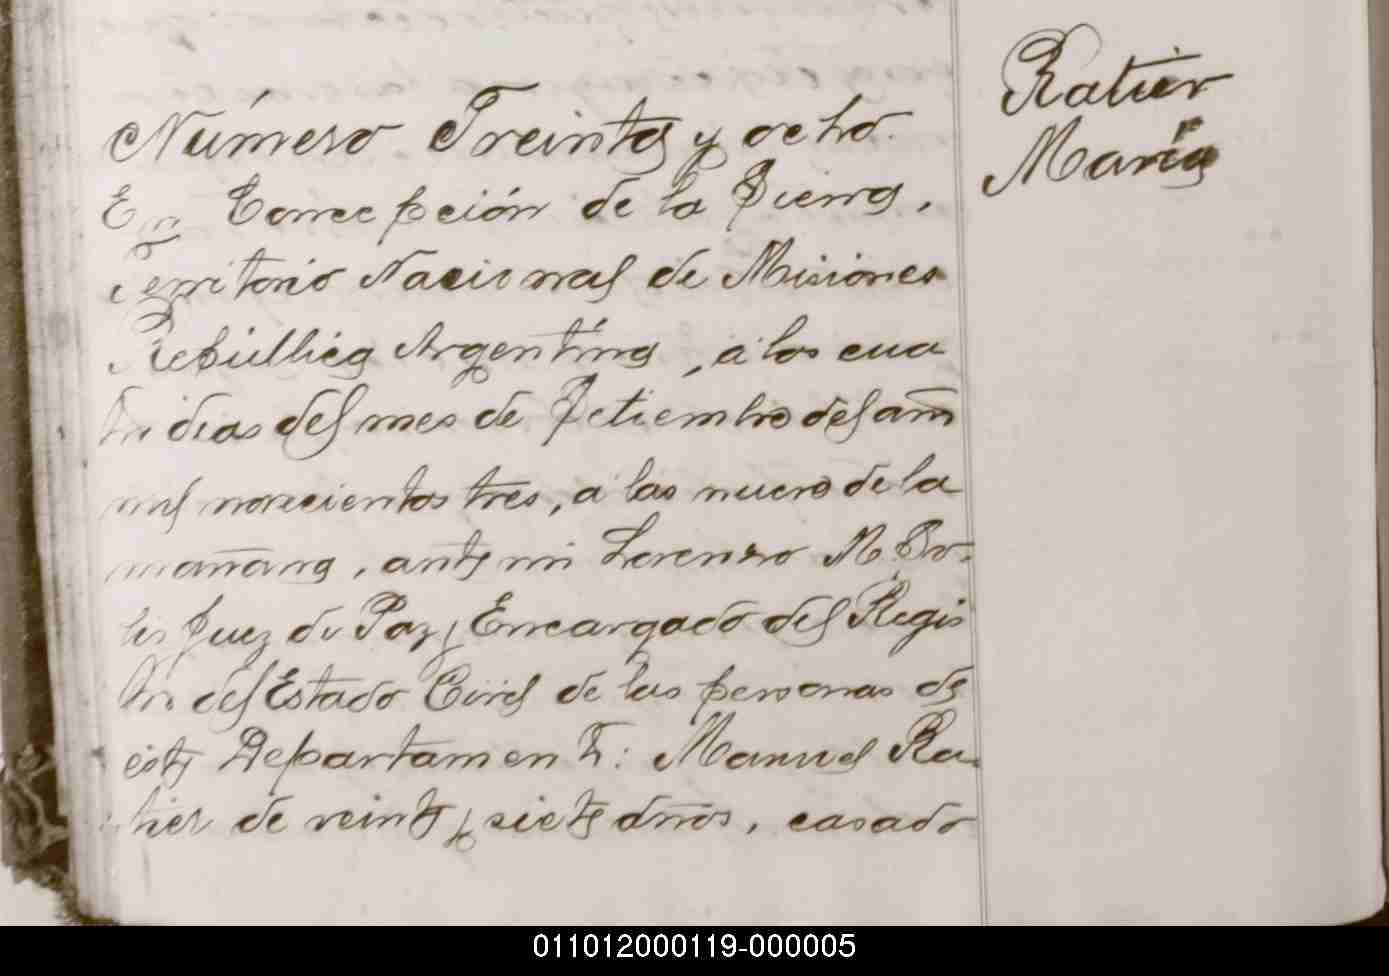 Número Treinta y ocho.
En Concepción de la Sierra,
Territorio Nacional de Misiones
República Argentina, a los cua
tro dias del mes de Setiembre del año
mil novecientos tres, a las nueve de la
mañana, ante mi Lorenzo M.
Juez de Paz y Encargado del Regis
tro del Estado Civil de las personas de
este Departamento: Manuel Ra
tier de veinte y siete años, casado
Ratier
María
011012000119-000005